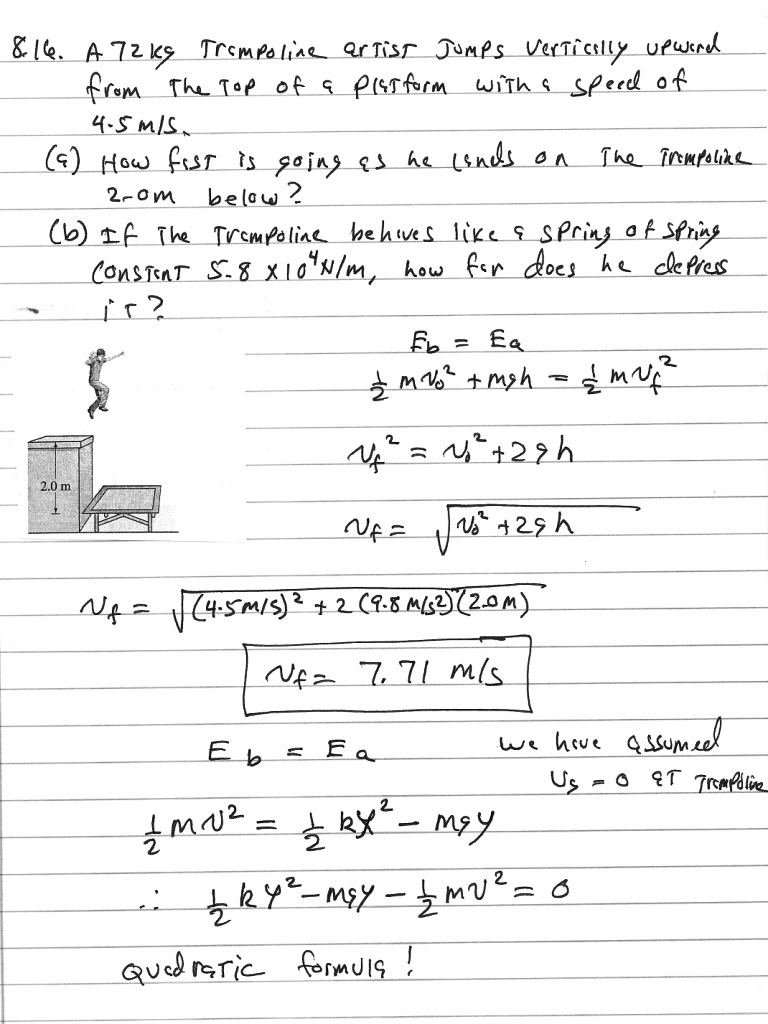 8.16. A 72 kg Trampoline artist Jumps Vertically upward
from The Top of a Platform with a speed of
4.5 m/s.
(a) How fast is going as he lands on The trampoline
2.0m below?
(b) If The Trampoline behaves like a spring of spring
Constant 5.8 x 10⁴ N/m, how far does he depress
it?
E_b = E_a
½ m v₀² + mgh = ½ m v_f²
2.0 m
v_f² = v₀² + 2gh
v_f = √(v₀² + 2gh)
v_f = √((4.5 m/s)² + 2 (9.8 m/s²)(2.0 m))
v_f = 7.71 m/s
E_b = E_a
we have assumed
U_g = 0 at Trampoline
½ m v² = ½ k y² - mgy
∴ ½ k y² - mgy - ½ m v² = 0
Quadratic formula!